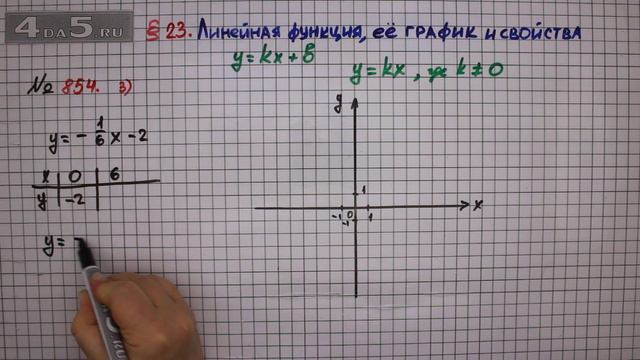 4DA5.RU
§ 23. Линейная функция, её график и свойства
y = kx + b
y = kx, где k ≠ 0
№ 854. 3)
y = - 1/6 x - 2
x 0 6
y -2
y = -
y
1
-1 0 1 x
-1